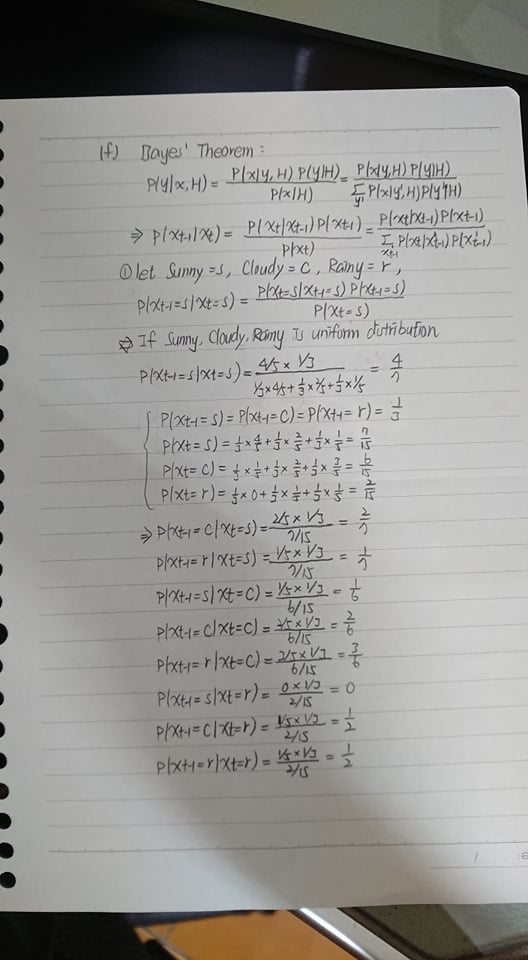 (f) Bayes' Theorem :
P(y|x, H) = P(x|y, H) P(y|H) / P(x|H) = P(x|y, H) P(y|H) / Σy' P(x|y', H) P(y'|H)
⇒ P(xt-1|xt) = P(xt|xt-1) P(xt-1) / P(xt) = P(xt|xt-1) P(xt-1) / Σxt-1 P(xt|x't-1) P(x't-1)
① let Sunny = s, Cloudy = c, Rainy = r,
P(xt-1=s|xt=s) = P(xt=s|xt-1=s) P(xt-1=s) / P(xt=s)
⇒ If Sunny, Cloudy, Rainy is uniform distribution
P(xt-1=s|xt=s) = 4/5 × 1/3 / 1/3×4/5 + 1/3×2/5 + 1/3×1/5 = 4/7
P(xt-1=s) = P(xt-1=c) = P(xt-1=r) = 1/3
P(xt=s) = 1/3 × 4/5 + 1/3 × 2/5 + 1/3 × 1/5 = 7/15
P(xt=c) = 1/3 × 1/5 + 1/3 × 2/5 + 1/3 × 3/5 = 6/15
P(xt=r) = 1/3 × 0 + 1/3 × 1/5 + 1/3 × 1/5 = 2/15
⇒ P(xt-1=c|xt=s) = 2/5 × 1/3 / 7/15 = 2/7
P(xt-1=r|xt=s) = 1/5 × 1/3 / 7/15 = 1/7
P(xt-1=s|xt=c) = 1/5 × 1/3 / 6/15 = 1/6
P(xt-1=c|xt=c) = 2/5 × 1/3 / 6/15 = 2/6
P(xt-1=r|xt=c) = 3/5 × 1/3 / 6/15 = 3/6
P(xt-1=s|xt=r) = 0 × 1/3 / 2/15 = 0
P(xt-1=c|xt=r) = 1/5 × 1/3 / 2/15 = 1/2
P(xt-1=r|xt=r) = 1/5 × 1/3 / 2/15 = 1/2